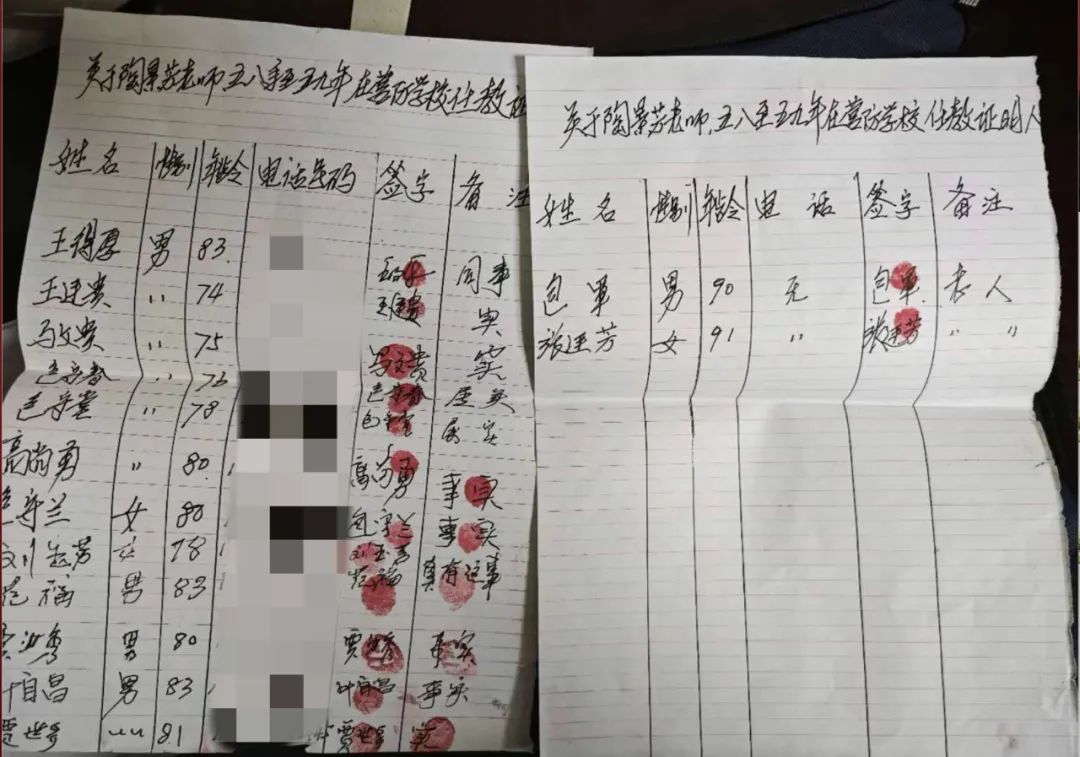 关于陶景芳老师五八年至五九年在营防学校任教证
姓名 性别 年龄 电话号码 签字 备注
王得厚 男 83. 同事
王廷贵 〃 74 王廷贵 实
马文贵 〃 75 马文贵 实
包守春 〃 包守春 属实
包守堂 〃 78 包守堂 属实
高尚勇 〃 80. 高尚勇 事实
包守兰 女 80 包守兰 事实
刘 芳 女 78 刘 芳
范福 男 83 范福 真有这事
男 80 贾 事实
叶自昌 男 83 叶自昌 事实
贾世 〃〃 81 贾世 实
关于陶景芳老师,五八至五九年在营防学校任教证明人
姓名 性别 年龄 电话 签字 备注
包军 男 90 无 包军 老人
张廷芳 女 91 〃 张廷芳 〃 〃